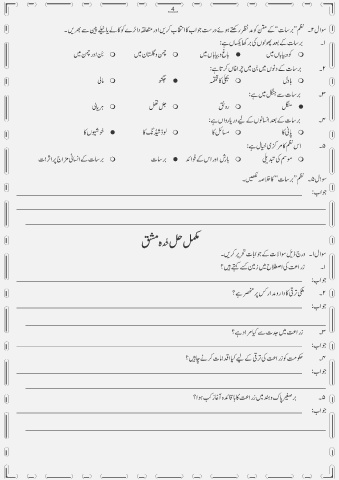 4
سوال۴۔ نظم "برسات" کے متن کو مدِنظر رکھتے ہوئے درست جواب کا انتخاب کریں اور متعلقہ دائرے کو کالے یا نیلے پین سے بھریں۔
۱۔ برسات کے بعد پھولوں کی برکھا یکساں ہے:
کوہ و بیاباں میں باغ و بیاباں میں چمن و گلستان میں بن اور چمن میں
۲۔ برسات کے دنوں میں بن میں چراغاں کرتا ہے:
بادل بجلی کا قمقمہ جگنو مالی
۳۔ برسات سے جنگل میں ہے:
منگل رونق جل تھل ہریالی
۴۔ برسات کے بعد انسانوں کے لیے دریا رواں ہے:
پانی کا مسائل کا لوڈشیڈنگ کا خوشیوں کا
۵۔ اس نظم کا مرکزی خیال ہے:
موسم کی تبدیلی بارش اور اس کے فوائد برسات برسات کے انسانی مزاج پر اثرات
سوال۵۔ نظم "برسات" کا خلاصہ لکھیں۔
جواب:
مکمل حل شدہ مشق
سوال۱۔ درج ذیل سوالات کے جوابات تحریر کریں۔
۱۔ زراعت کی اصطلاح میں زمین کسے کہتے ہیں؟
جواب:
۲۔ ملکی ترقی کا دارومدار کس پر منحصر ہے؟
جواب:
۳۔ زراعت میں جدت سے کیا مراد ہے؟
جواب:
۴۔ حکومت کو زراعت کی ترقی کے لیے کیا اقدامات کرنے چاہیں؟
جواب:
۵۔ برصغیر پاک و ہند میں زراعت کا باقاعدہ آغاز کب ہوا؟
جواب: